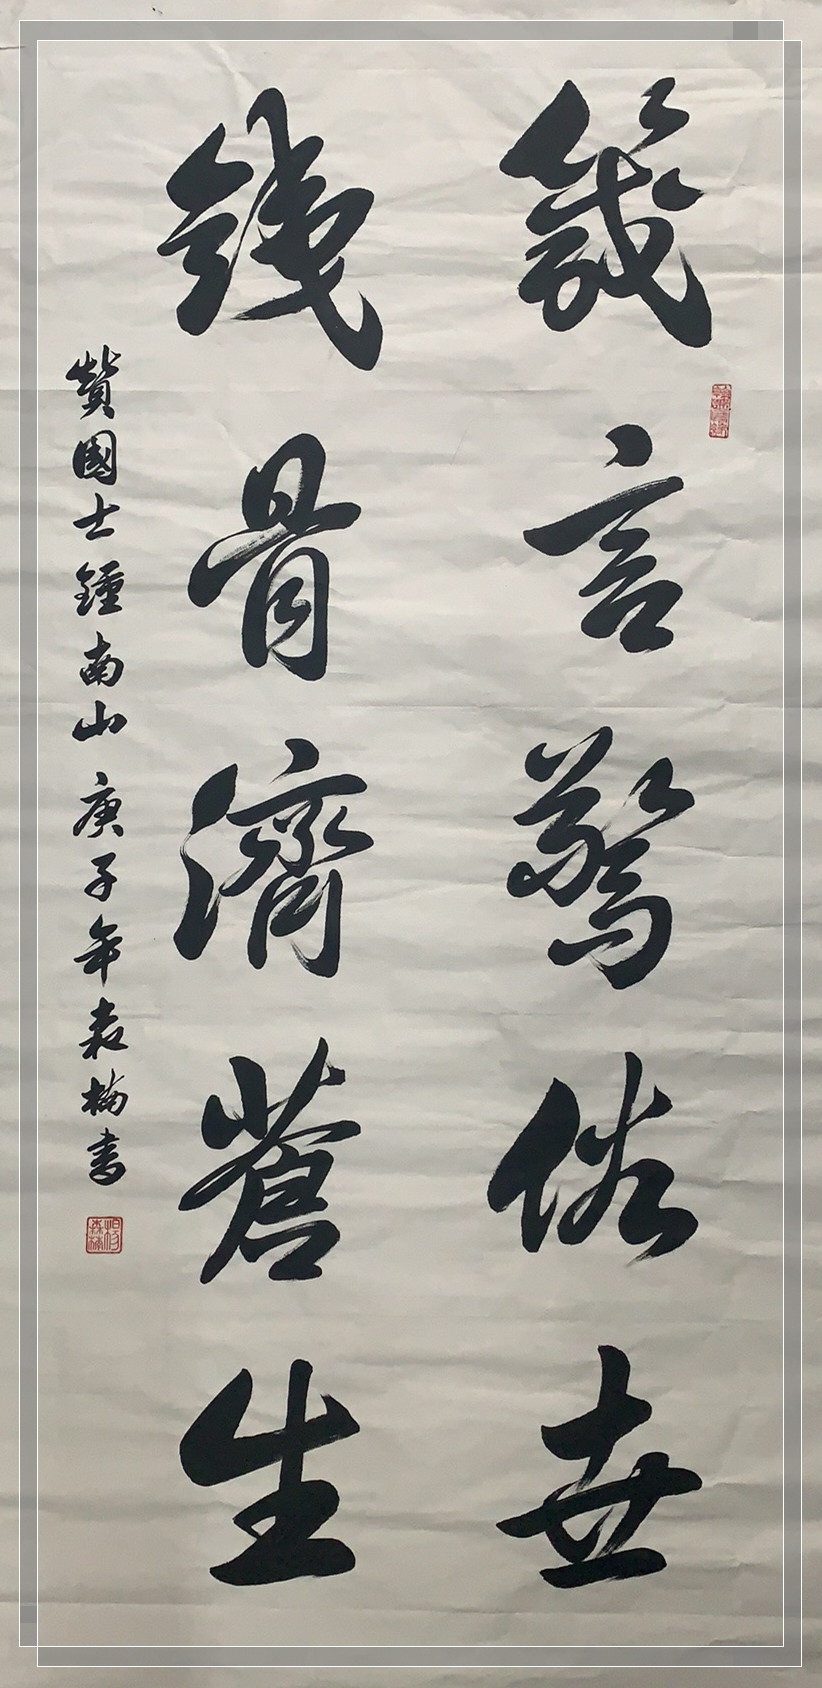 箴言驚俗世
鐵骨濟蒼生
贊國士鍾南山 庚子年森楠書